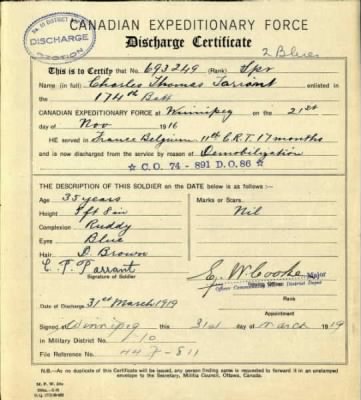 No. 10 DISTRICT
DISCHARGE
SECTION
CANADIAN EXPEDITIONARY FORCE
Discharge Certificate
2 Blues
This is to Certify that No. 693249 (Rank) Spr
Name (in full) Charles Thomas Tarrant enlisted in
the 174th Batt
CANADIAN EXPEDITIONARY FORCE at Winnipeg on the 21st
day of Nov 1916
HE served in France Belgium 11th C.R.T. 17 months
and is now discharged from the service by reason of Demobilization
☆ C.O. 74 - 891 D.O. 86 ☆
THE DESCRIPTION OF THIS SOLDIER on the DATE below is as follows:—
Age 35 years
Marks or Scars
Height 5 ft 8 in
Nil
Complexion Ruddy
Eyes Blue
Hair D. Brown
C. T. Tarrant
Signature of Soldier
E. W. Cooke Major
Issuing Officer
Officer Commanding District Depot
Date of Discharge 31st March 1919
Rank
Appointment
Signed at Winnipeg this 31st day of March 1919
in Military District No. 10
File Reference No. 447-811
M. F. W.
N.B.—As no duplicate of this Certificate will be issued, any person finding same is requested to forward it in an unstamped
envelope to the Secretary, Militia Council, Ottawa, Canada.